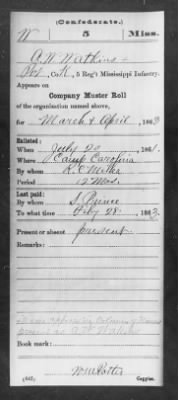 (Confederate.)
W 5 Miss.
A. W. Watkins
Pvt, Co. K, 5 Reg't Mississippi Infantry.
Appears on
Company Muster Roll
of the organization named above,
for March & April, 1863
Enlisted:
When July 20, 1861.
Where Camp Carolina
By whom
Period 12 Mos.
Last paid:
By whom S. Prince
To what time Feby 28, 1863.
Present or absent present
Remarks:
Book mark:
(642) Copyist.